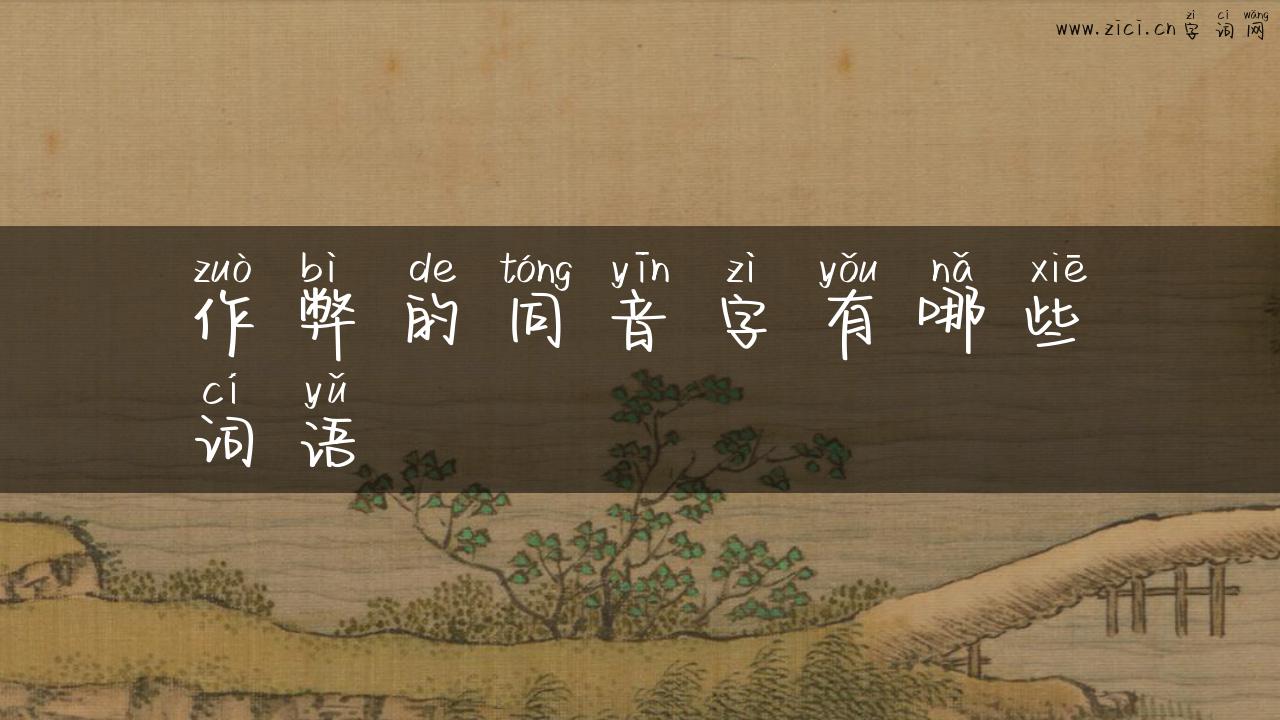 zì cí wǎng
www.zici.cn 字词网
zuò bì de tóng yīn zì yǒu nǎ xiē
作弊的同音字有哪些
cí yǔ
词语